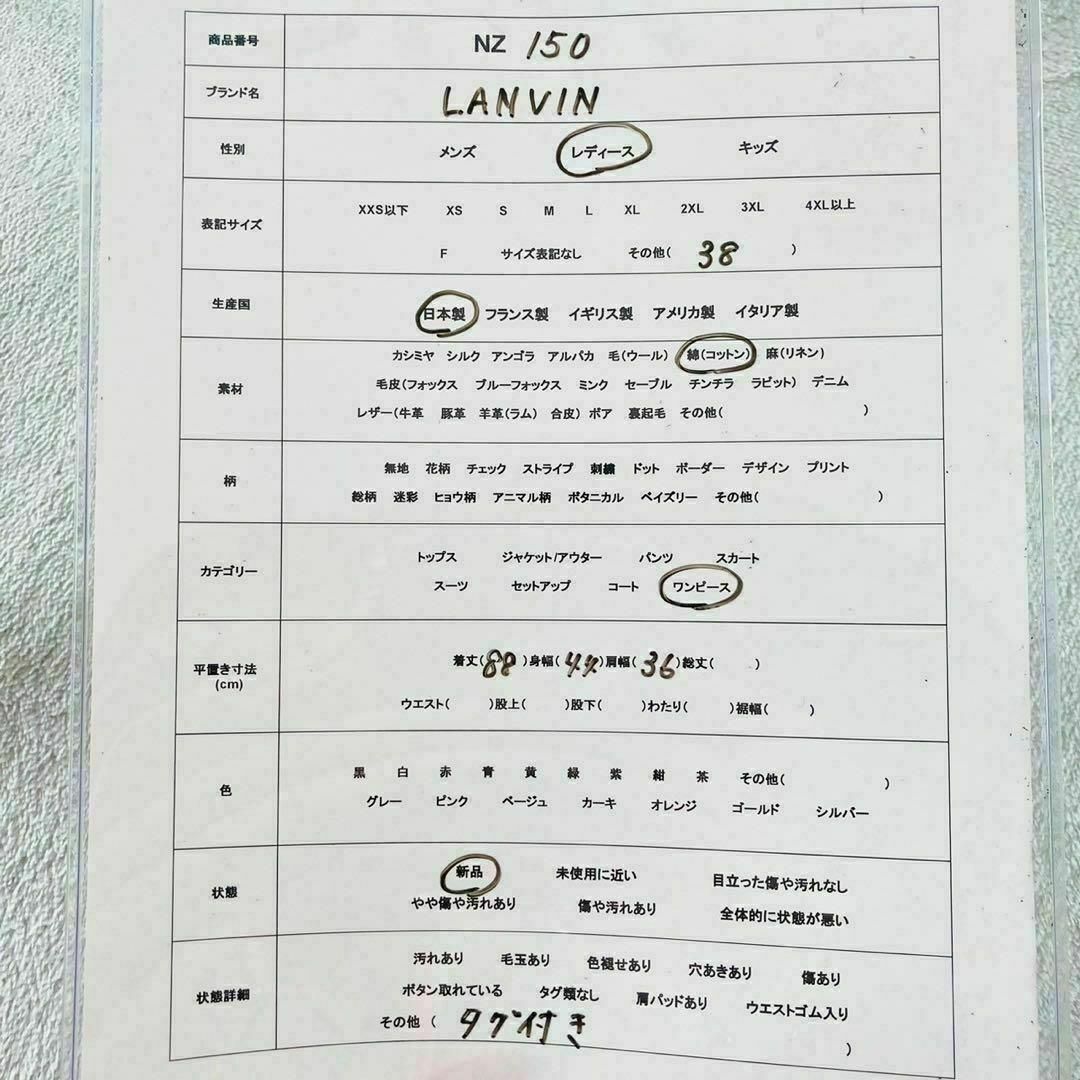 商品番号 NZ 150
ブランド名 LANVIN
性別 メンズ レディース キッズ
表記サイズ XXS以下 XS S M L XL 2XL 3XL 4XL以上
F サイズ表記なし その他( 38 )
生産国 日本製 フランス製 イギリス製 アメリカ製 イタリア製
素材 カシミヤ シルク アンゴラ アルパカ 毛(ウール) 綿(コットン) 麻(リネン)
毛皮(フォックス ブルーフォックス ミンク セーブル チンチラ ラビット) デニム
レザー(牛革 豚革 羊革(ラム) 合皮) ボア 裏起毛 その他( )
柄 無地 花柄 チェック ストライプ 刺繍 ドット ボーダー デザイン プリント
総柄 迷彩 ヒョウ柄 アニマル柄 ボタニカル ペイズリー その他( )
カテゴリー トップス ジャケット/アウター パンツ スカート
スーツ セットアップ コート ワンピース
平置き寸法 着丈( 88 )身幅( 44 )肩幅( 36 )総丈( )
(cm) ウエスト( )股上( )股下( )わたり( )裾幅( )
色 黒 白 赤 青 黄 緑 紫 紺 茶 その他( )
グレー ピンク ベージュ カーキ オレンジ ゴールド シルバー
状態 新品 未使用に近い 目立った傷や汚れなし
やや傷や汚れあり 傷や汚れあり 全体的に状態が悪い
状態詳細 汚れあり 毛玉あり 色褪せあり 穴あきあり 傷あり
ボタン取れている タグ類なし 肩パッドあり ウエストゴム入り
その他 ( タグ付き )